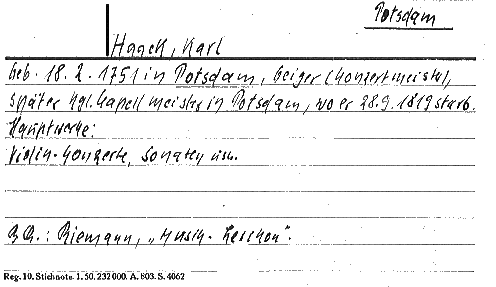 Potsdam
Haack, Karl
geb. 18. 2. 1751 in Potsdam, Geiger (Konzertmeister),
später kgl. Kapellmeister in Potsdam, wo er 28.9.1819 starb.
Hauptwerke:
Violin-Konzerte, Sonaten usw.
Riemann, „Musik-Lexikon".
Reg. 10. Stichnote. 1. 50. 232000. A. 803. S. 4062